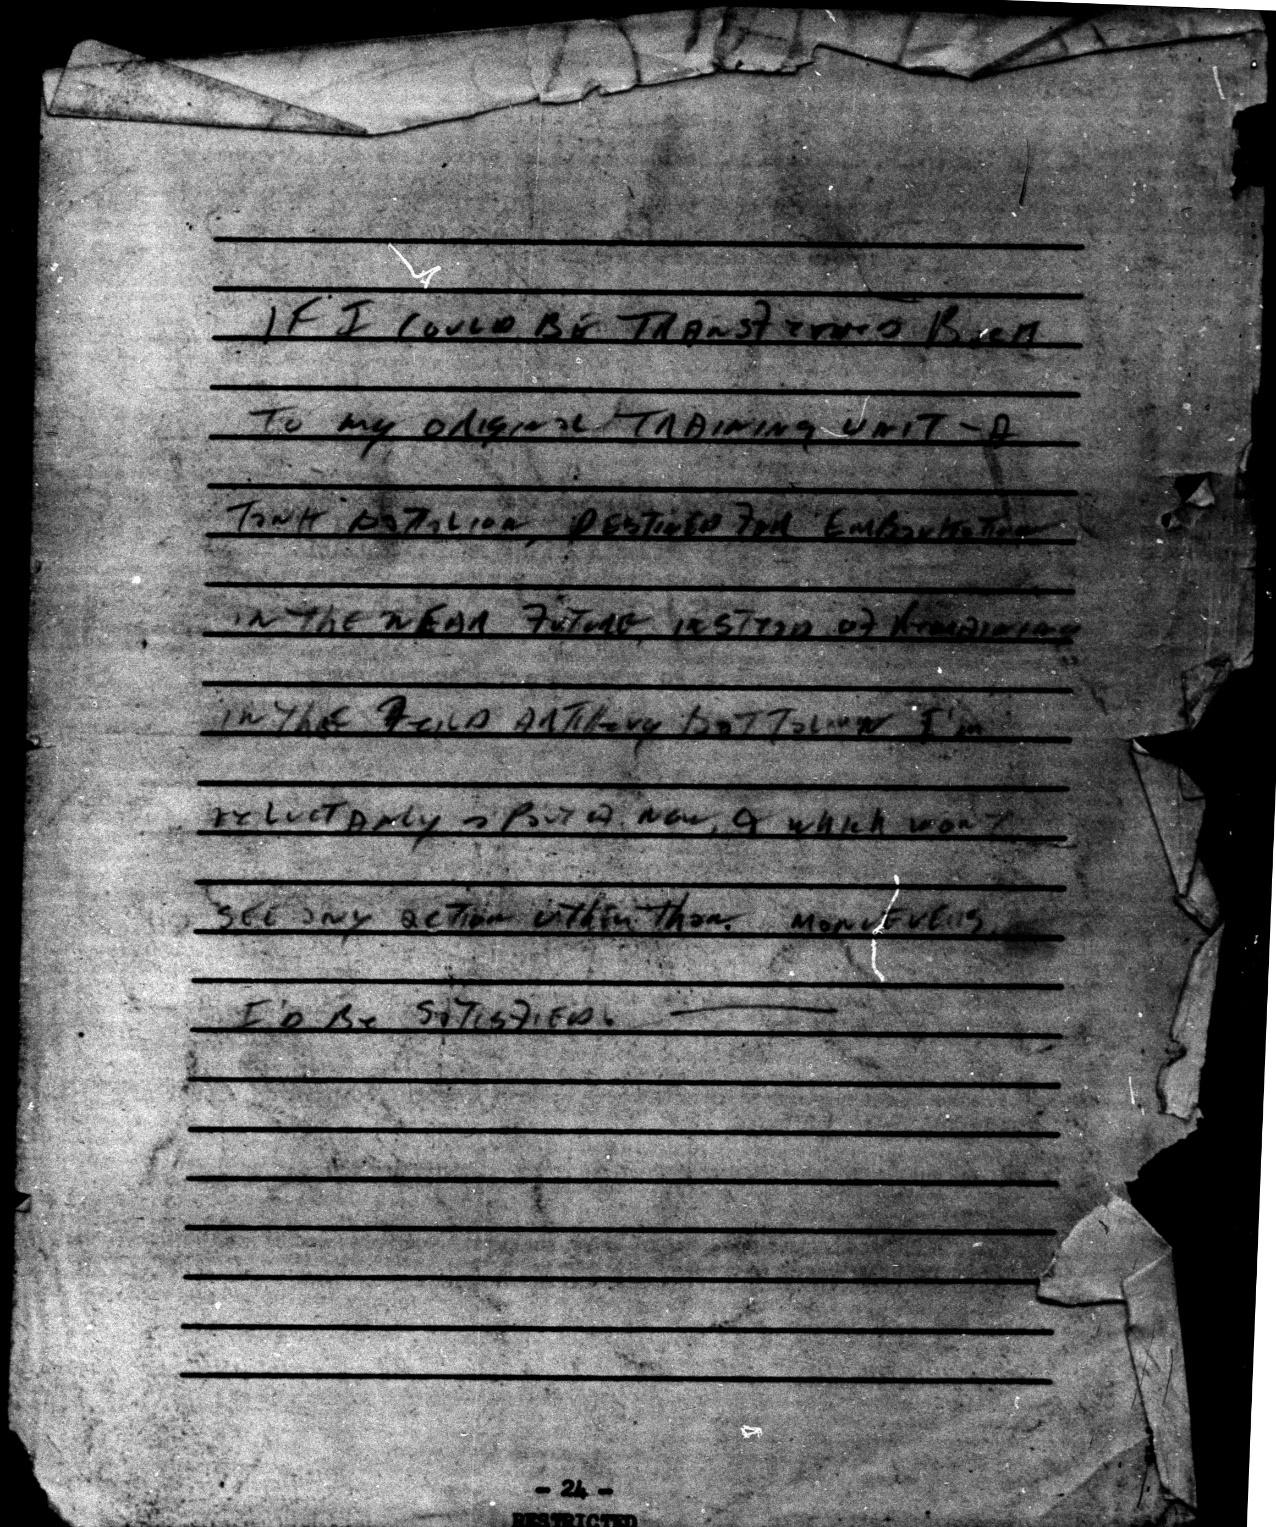 IF I COULD BE TRANSFERRED BACK
TO MY ORIGINAL TRAINING UNIT - A
TANK BATTALION, DESTINED FOR EMBARKATION
IN THE NEAR FUTURE, INSTEAD OF REMAINING
IN THE FEILD ARTILLERY BATTALION I'M
RELUCTANLY A PART OF NOW, & WHICH WON'T
SEE ANY ACTION WITHIN
I'D BE SATISFIED.
- 24 -
RESTRICTED